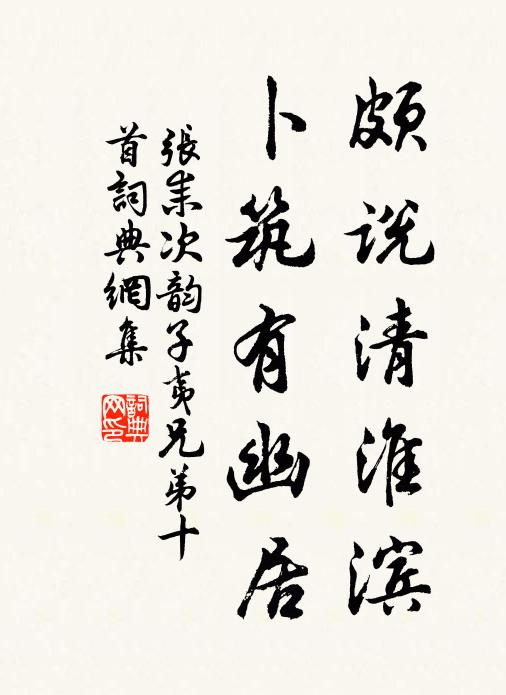 颇说清淮滨
卜筑有幽居
張耒次韵子夷兄弟十
首詞典網集
詞典
网印